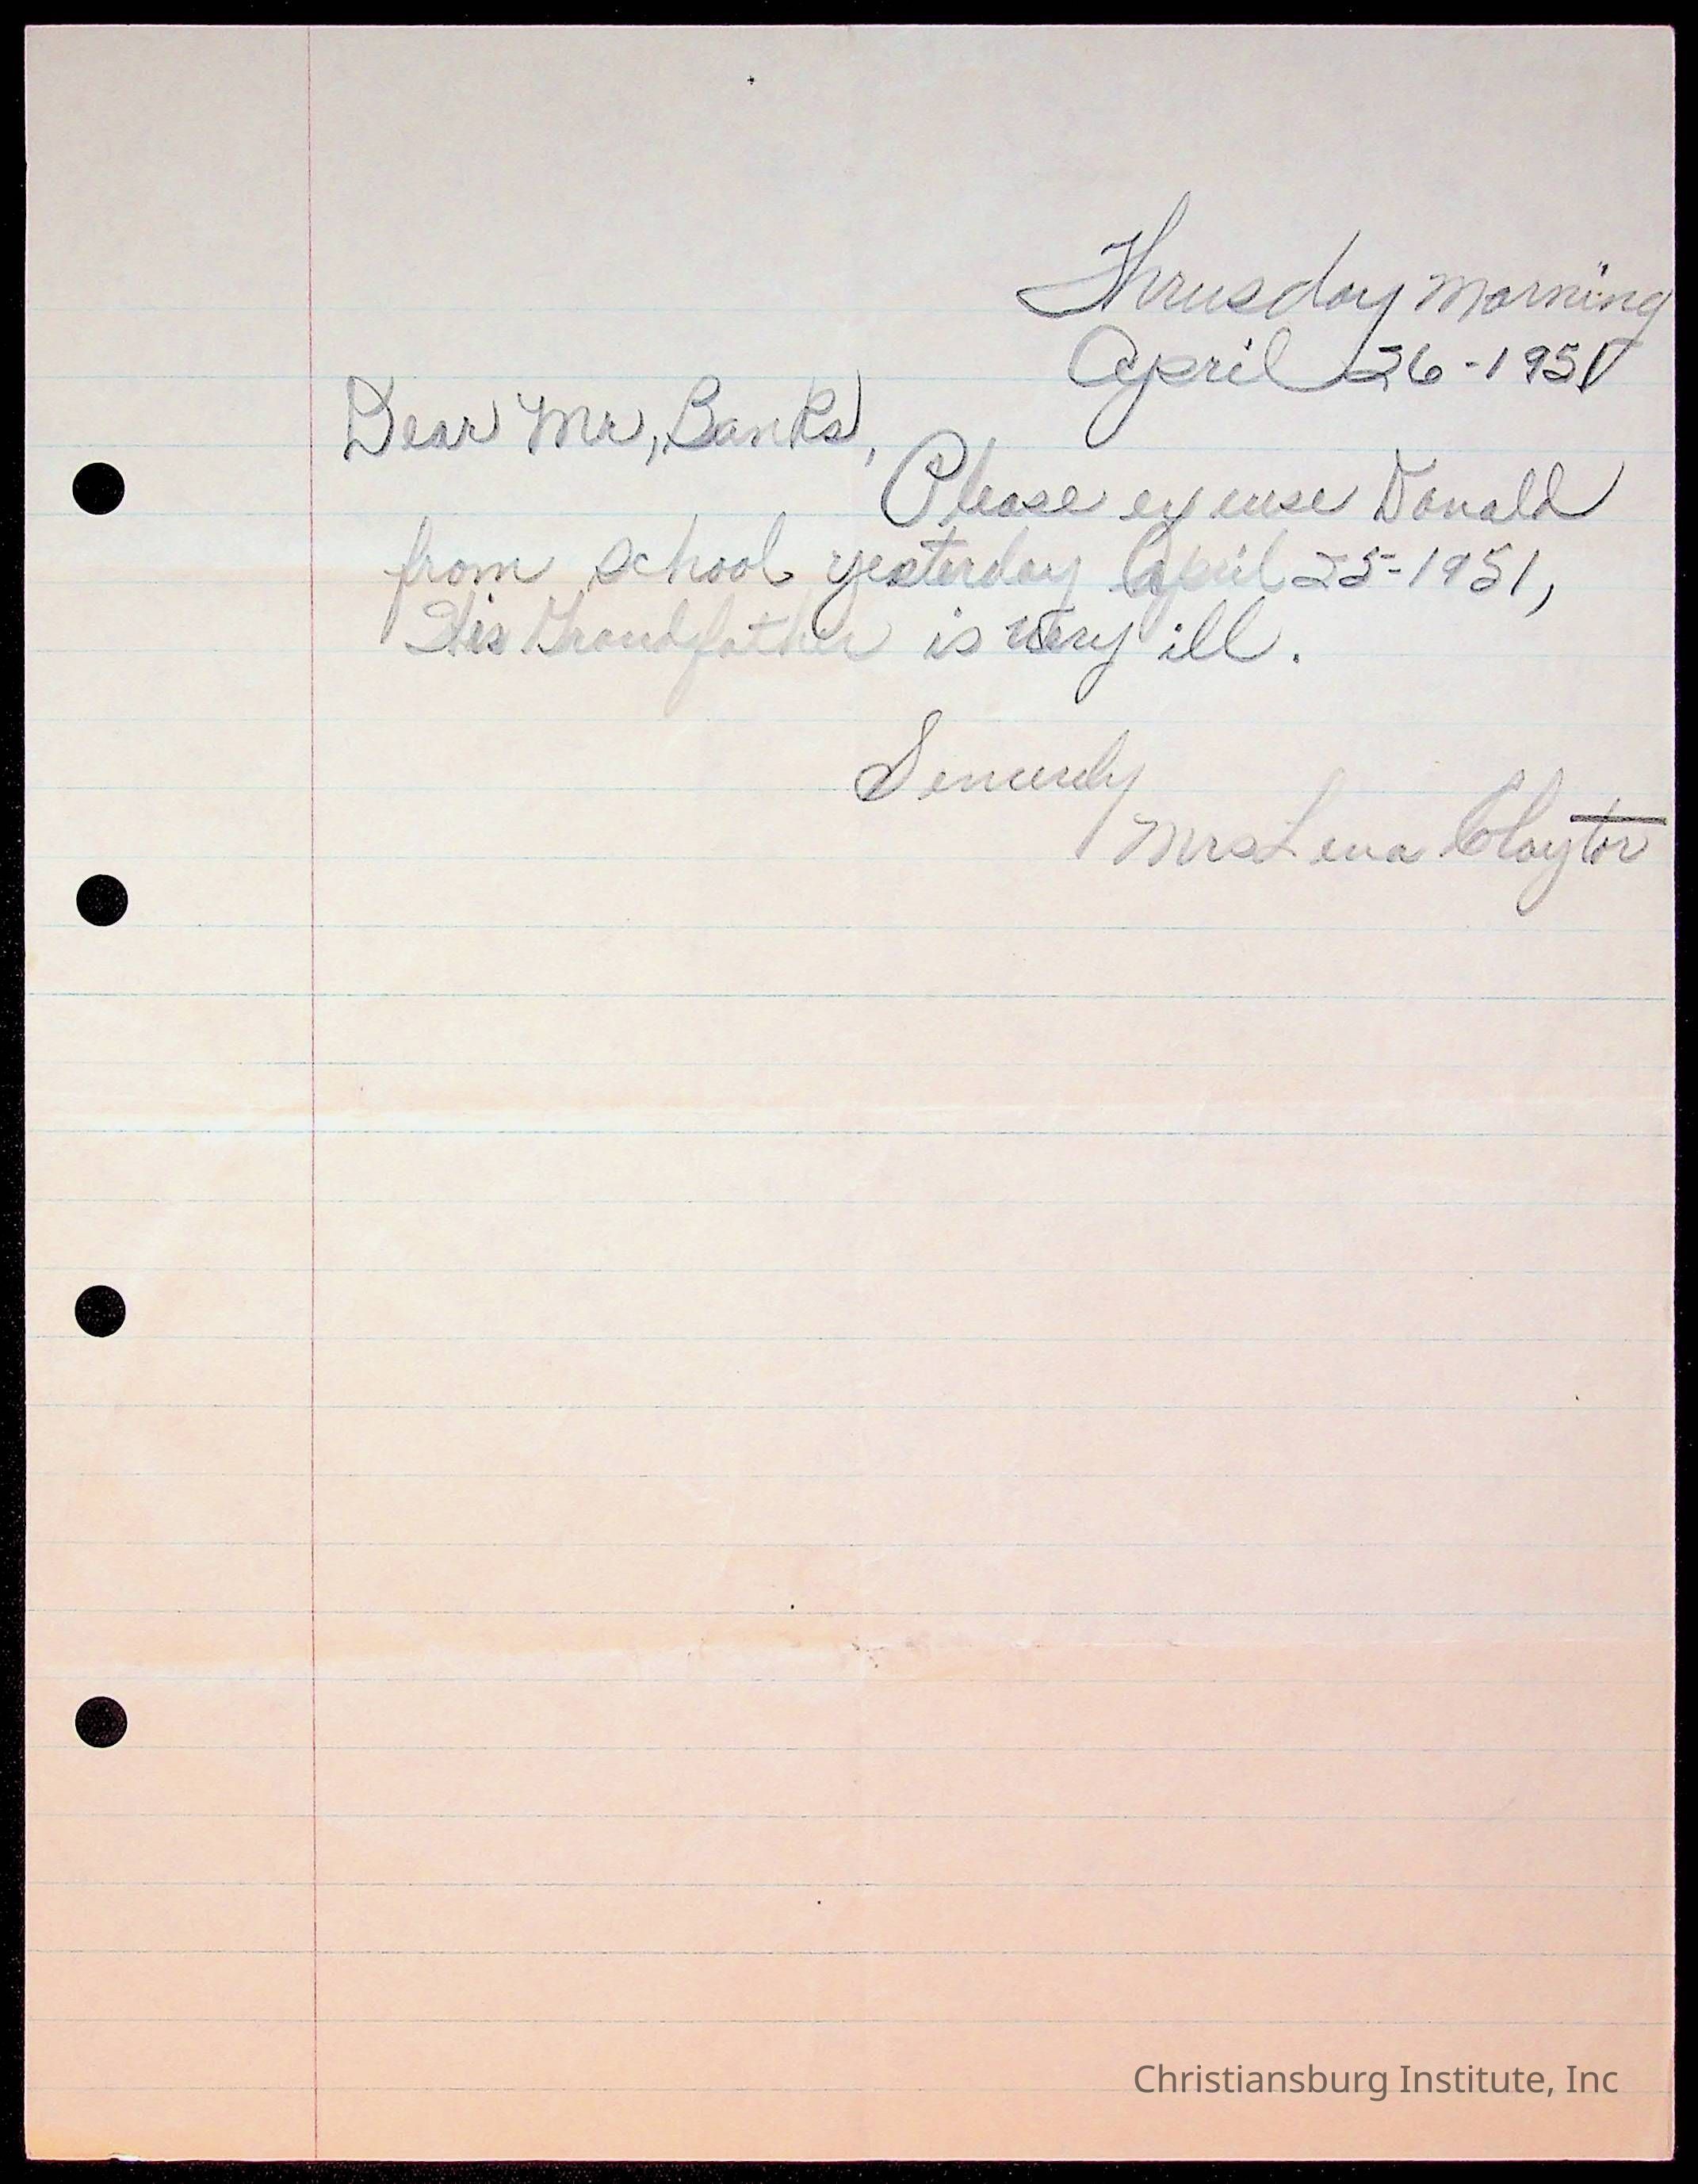 Thrusday Morning
April 26-1951
Dear Mr, Banks,
Please excuse Donald
from school yesterday April 25-1951,
His Grandfather is very ill.
Sencerely
Mrs Lena Claytor
Christiansburg Institute, Inc